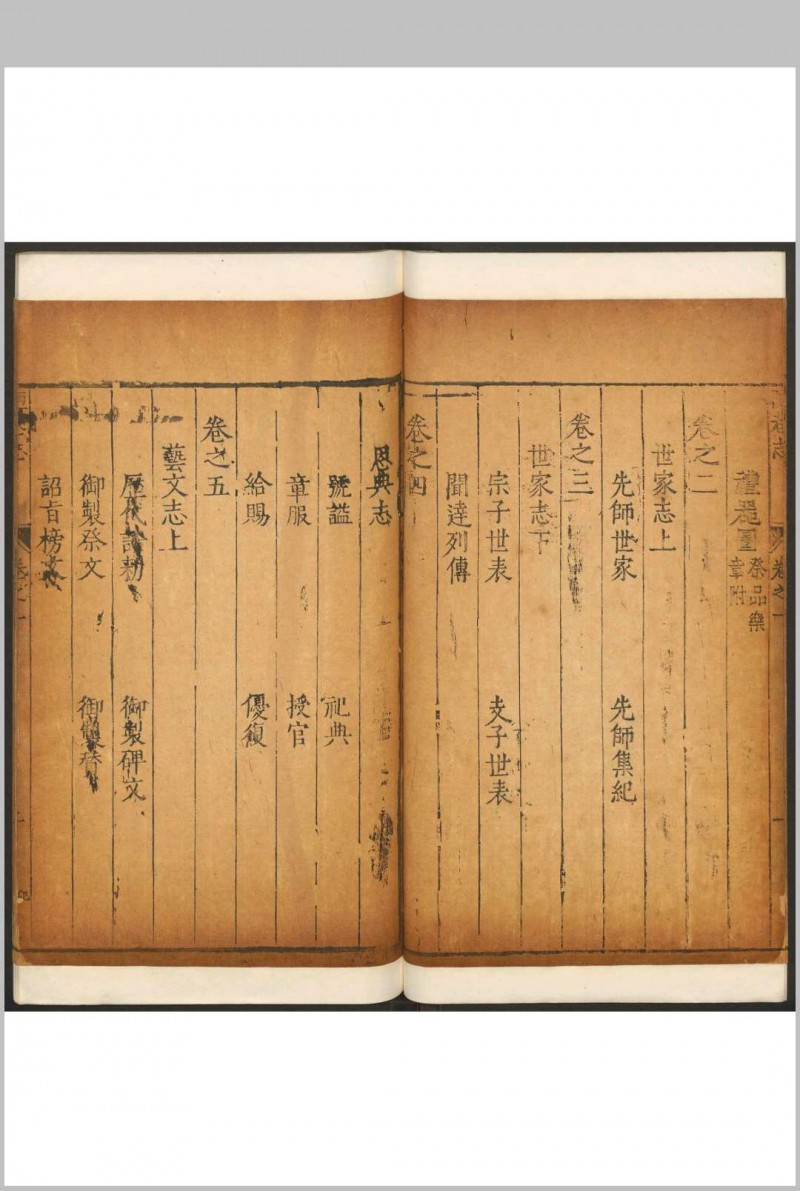 禮器圖 祭品樂
章附
卷之二
世家志上
先師世家 先師集紀
卷之三
世家志下
宗子世表 支子世表
聞達列傳
卷之四
恩典志
號謚 祀典
章服 授官
給賜 優復
卷之五
藝文志上
歷代誥勑 御製碑文
御製祭文 御製贊
詔旨榜文
卷之一